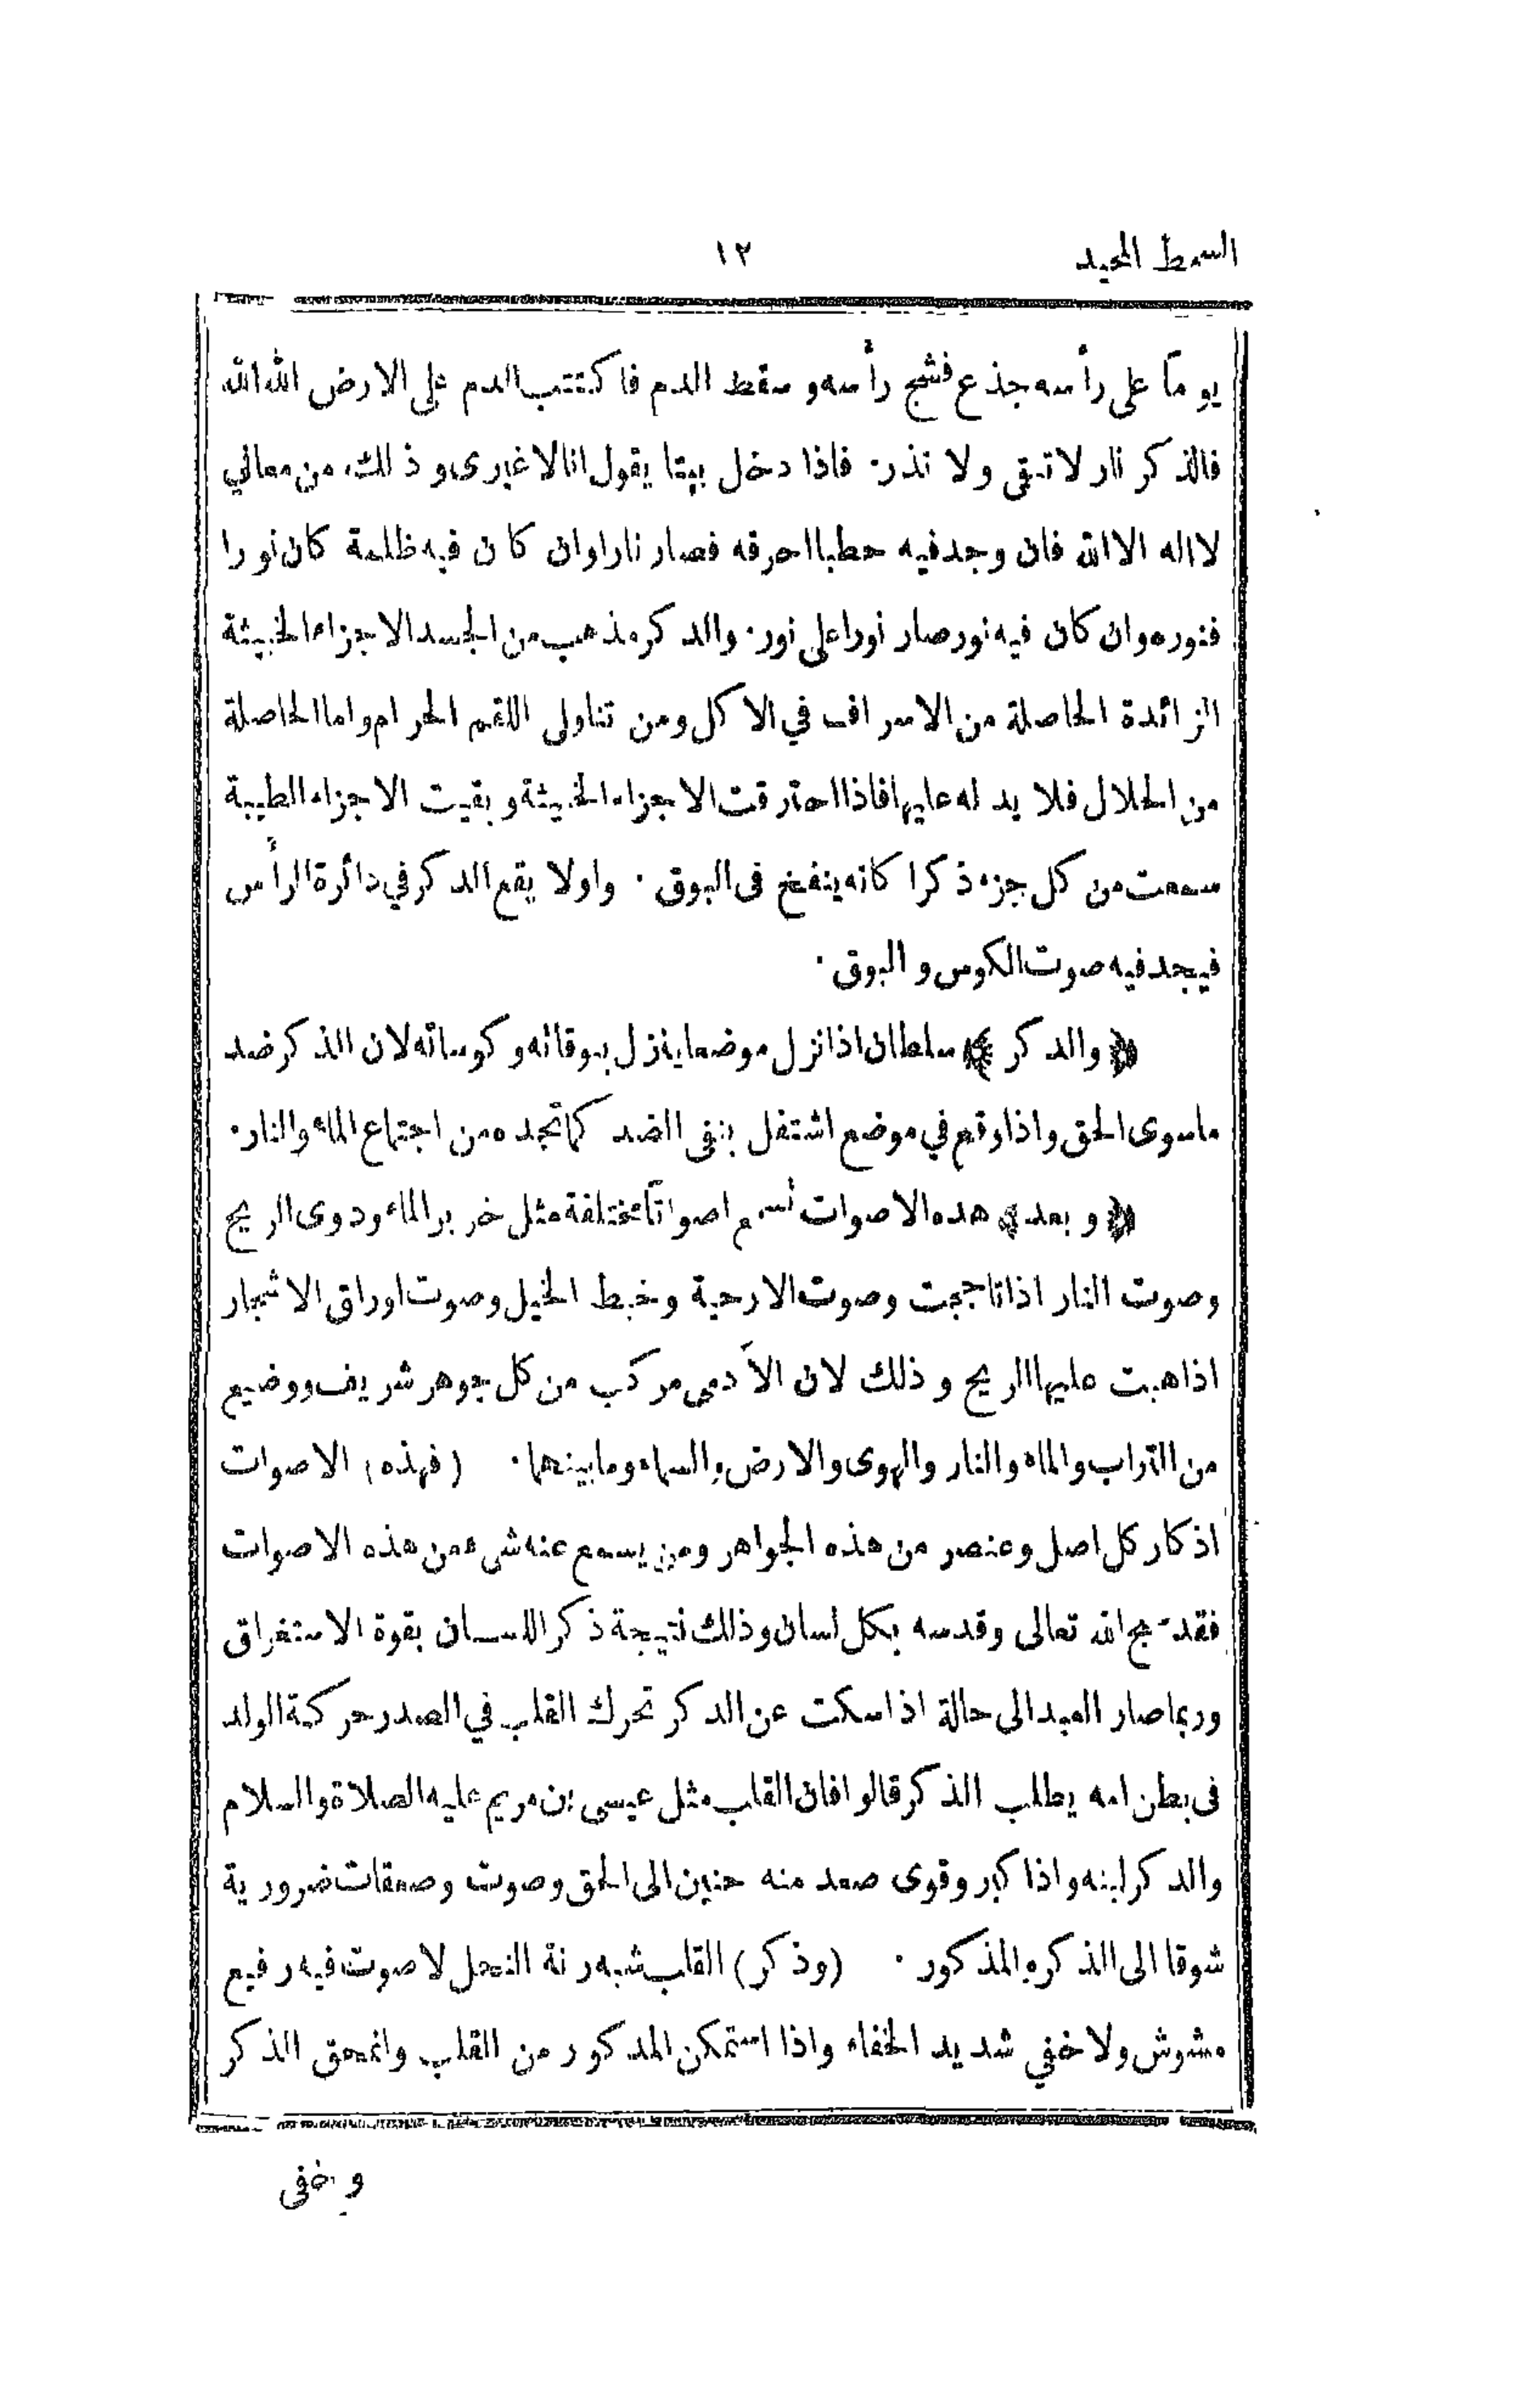 السمط المجيد ١٢
يوماً على رأسه جذع فشج رأسه وسقط الدم فاكتتب الدم على الارض الله الله
فالذكر نار لا تبقى ولا تذر٠ فاذا دخل بيتا يقول انا لا غيرى وذلك من معاني
لا اله الا الله فان وجد فيه حطبا احرقه فصار نارا وان كان فيه ظلمة كان نورا
فنوره وان كان فيه نور صار نورا على نور٠ والذكر مذهب من الجسد الاجزاء الخبيثة
الزائدة الحاصلة من الاسراف في الاكل ومن تناول اللقم الحرام واما الحاصلة
من الحلال فلا يد له عليها فاذا احترقت الاجزاء الخبيثة وبقيت الاجزاء الطيبة
سمعت من كل جزء ذكرا كانه ينفخ فى البوق ٠ واولا يقع الذكر في دائرة الرأس
فيجد فيه صوت الكوس والبوق ٠
﴿ والذكر ﴾ سلطان اذا نزل موضعا ينزل ببوقاته وكوساته لان الذكر ضد
ماسوى الحق واذا وقع في موضع اشتغل بنفى الضد كما تجده من اجتماع الماء والنار٠
﴿ وبعد ﴾ هذه الاصوات تسمع اصواتاً مختلفة مثل خرير الماء ودوى الريح
وصوت النار اذا تاججت وصوت الارحية وخبط الخيل وصوت اوراق الاشجار
اذا هبت عليها الريح وذلك لان الآدمى مركب من كل جوهر شريف ووضيع
من التراب والماء والنار والهوى والارض والسماء وما بينهما٠ (فهذه) الاصوات
اذكار كل اصل وعنصر من هذه الجواهر ومن يسمع عنه شىء من هذه الاصوات
فقد سبح الله تعالى وقدسه بكل لسان وذلك نتيجة ذكر اللسان بقوة الاستغراق
وربما صار العبد الى حالة اذا سكت عن الذكر تحرك القلب في الصدر حركة الولد
فى بطن امه يطلب الذكر قالوا فان القلب مثل عيسى بن مريم عليه الصلاة والسلام
والذكر لبنه واذا كبر وقوى صعد منه حنين الى الحق وصوت وصعقات ضرورية
شوقا الى الذكر والمذكور ٠ (وذكر) القلب شبه رنة النحل لا صوت فيه رفيع
مشوش ولا خفي شديد الخفاء واذا استمكن المذكور من القلب وانمحق الذكر
وخفى